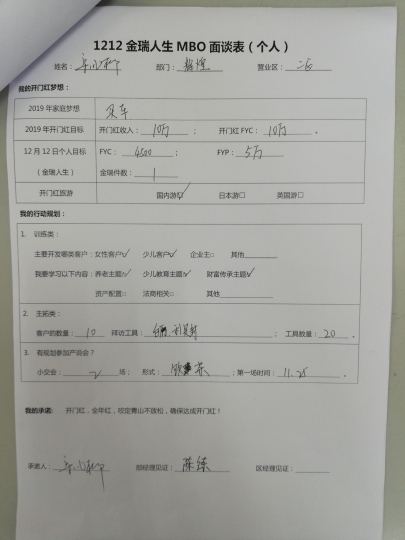 1212 金瑞人生 MBO 面谈表（个人）
姓名： 部门：辉煌 营业区：二区
我的开门红梦想：
2019 年家庭梦想 买车
2019 年开门红目标 开门红收入：10万； 开门红 FYC：10万。
12 月 12 日个人目标 FYC：4500； FYP：5万
（金瑞人生） 金瑞件数：1
开门红旅游 国内游☑ 日本游□ 英国游□
我的行动规划：
1. 训练类：
主要开发哪类客户：女性客户☑ 少儿客户☑ 企业主□ 其他
我要学习以下内容：养老主题☑ 少儿教育主题☑ 财富传承主题☑
资产配置□ 法商相关□ 其他
2. 主拓类：
客户的数量：10 拜访工具： ；工具数量：20。
3. 有规划参加产说会？
小交会：2 场； 形式： ；第一场时间：11.25。
我的承诺： 开门红，全年红，咬定青山不放松，确保达成开门红！
承诺人： 部经理见证： 区经理见证：